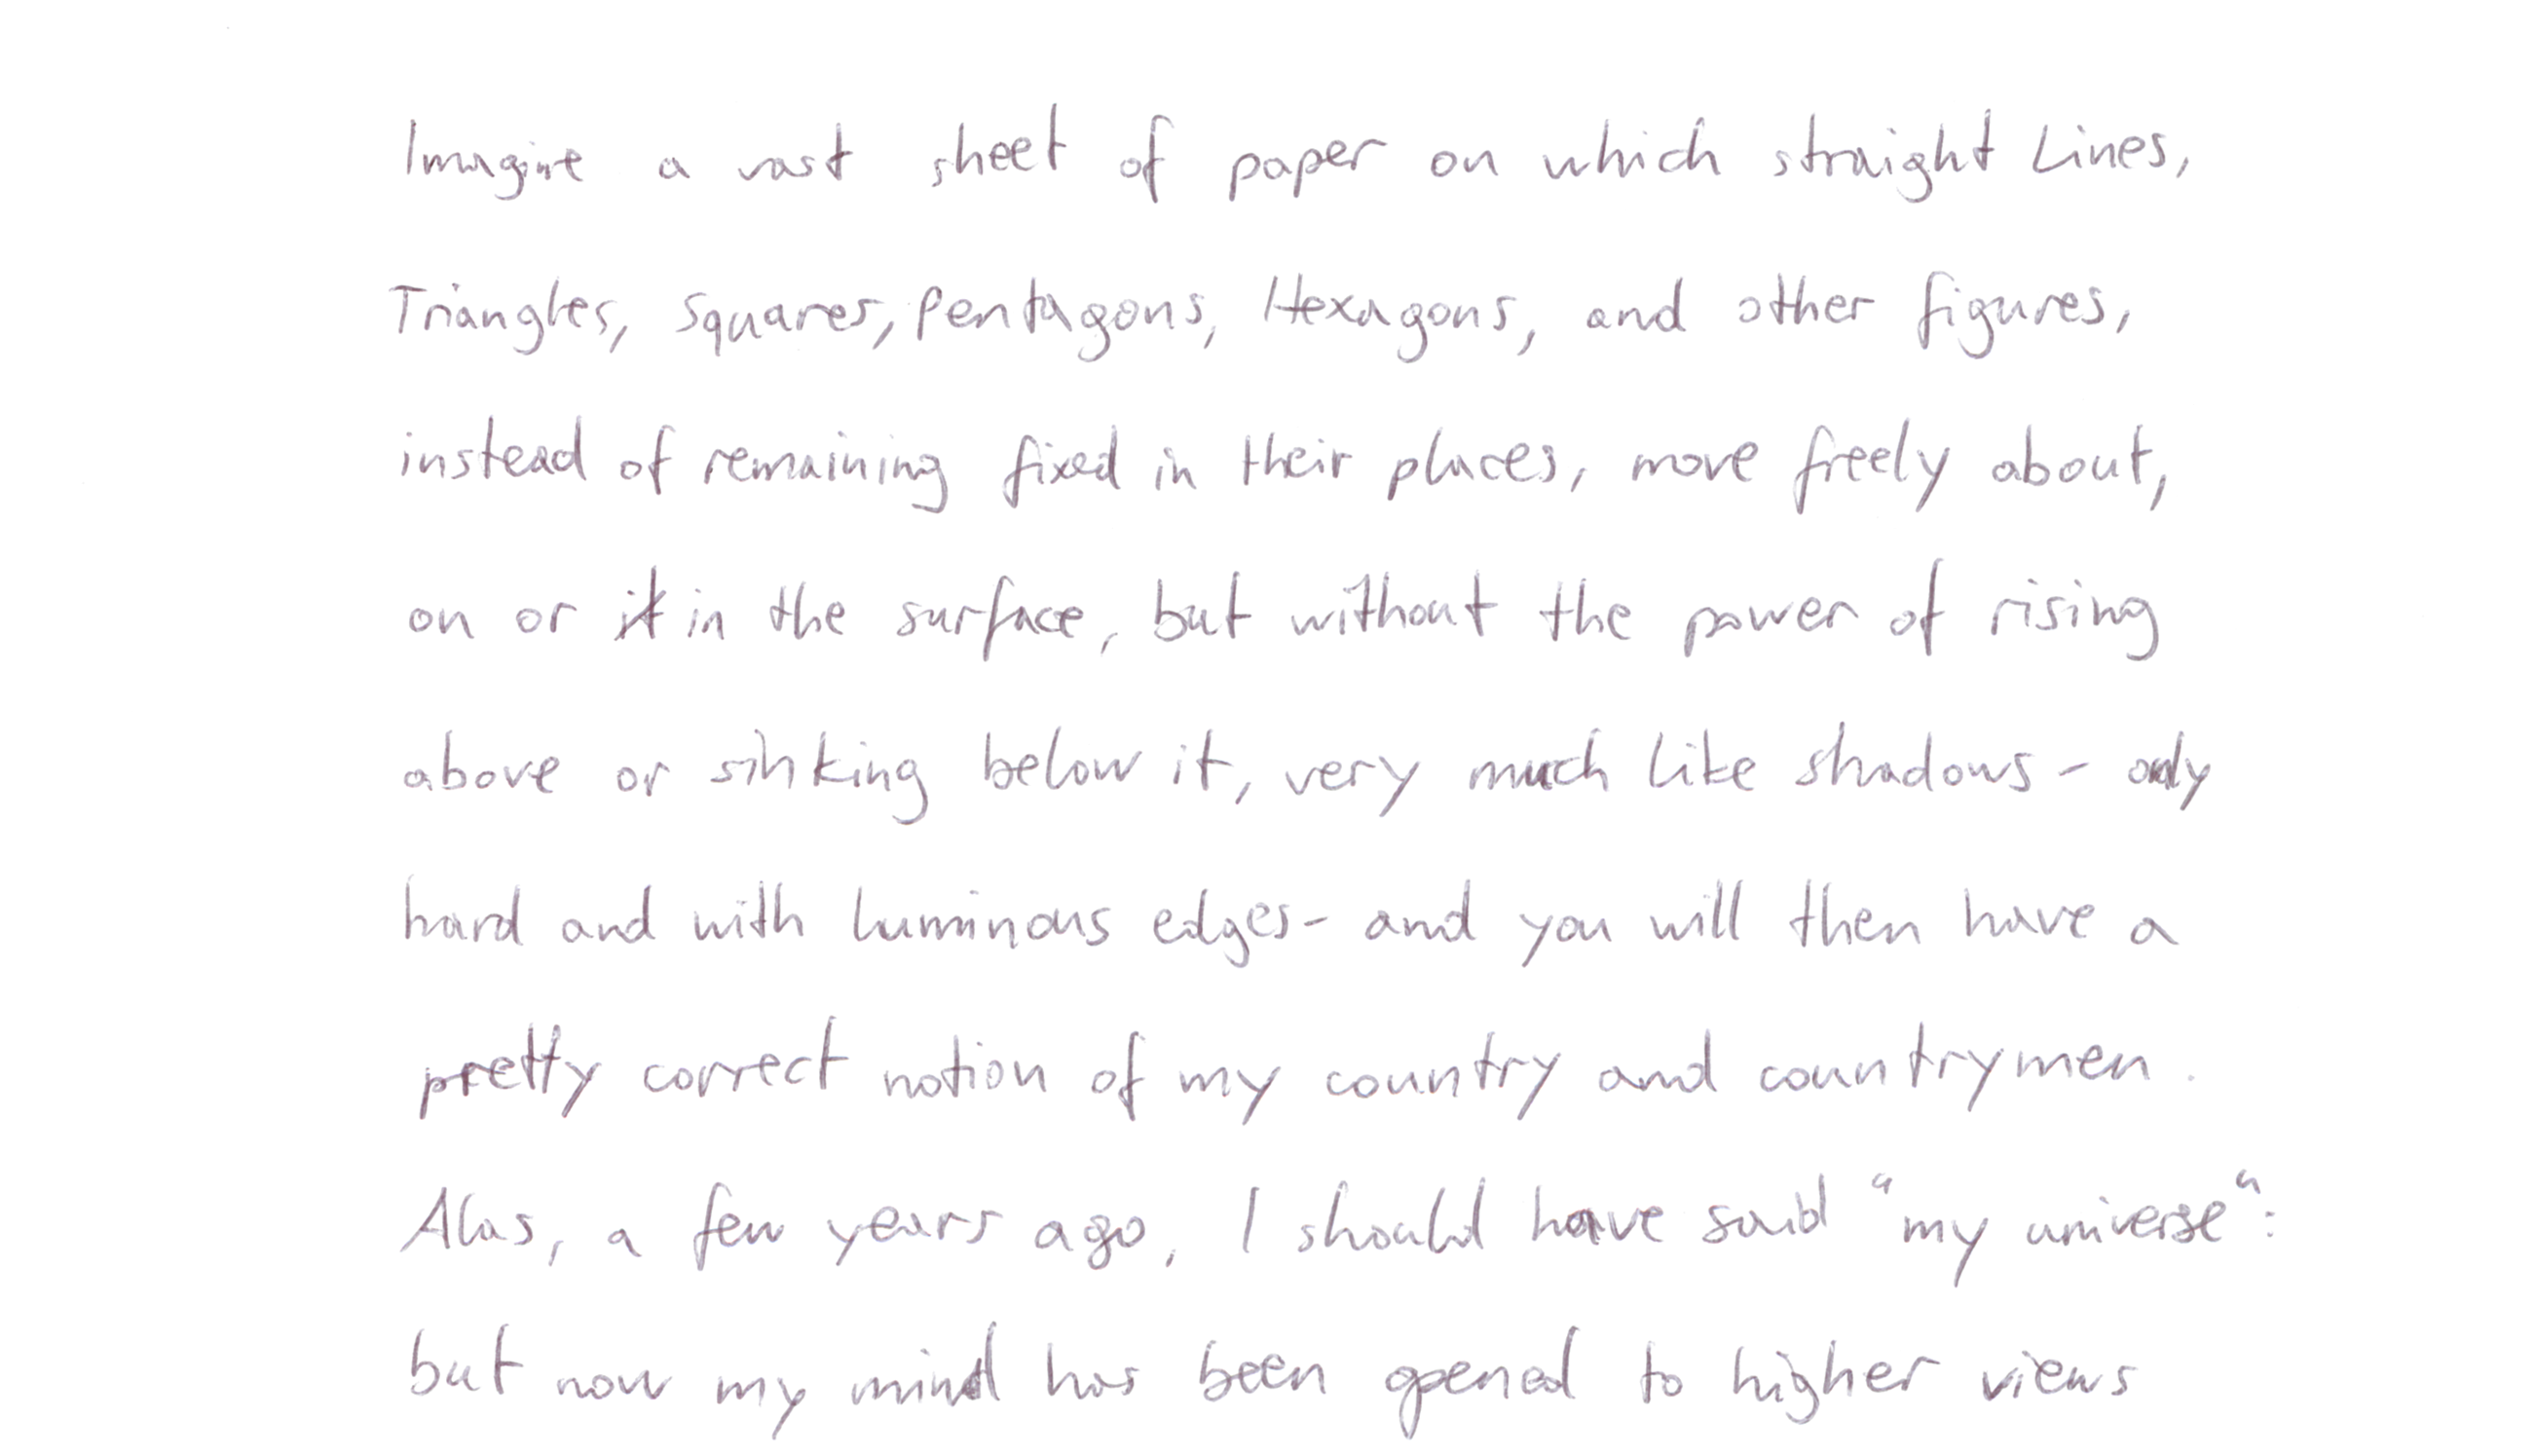 Imagine a vast sheet of paper on which straight Lines,
Triangles, Squares, Pentagons, Hexagons, and other figures,
instead of remaining fixed in their places, move freely about,
on or in the surface, but without the power of rising
above or sinking below it, very much like shadows - only
hard and with luminous edges - and you will then have a
pretty correct notion of my country and countrymen.
Alas, a few years ago, I should have said "my universe":
but now my mind has been opened to higher views